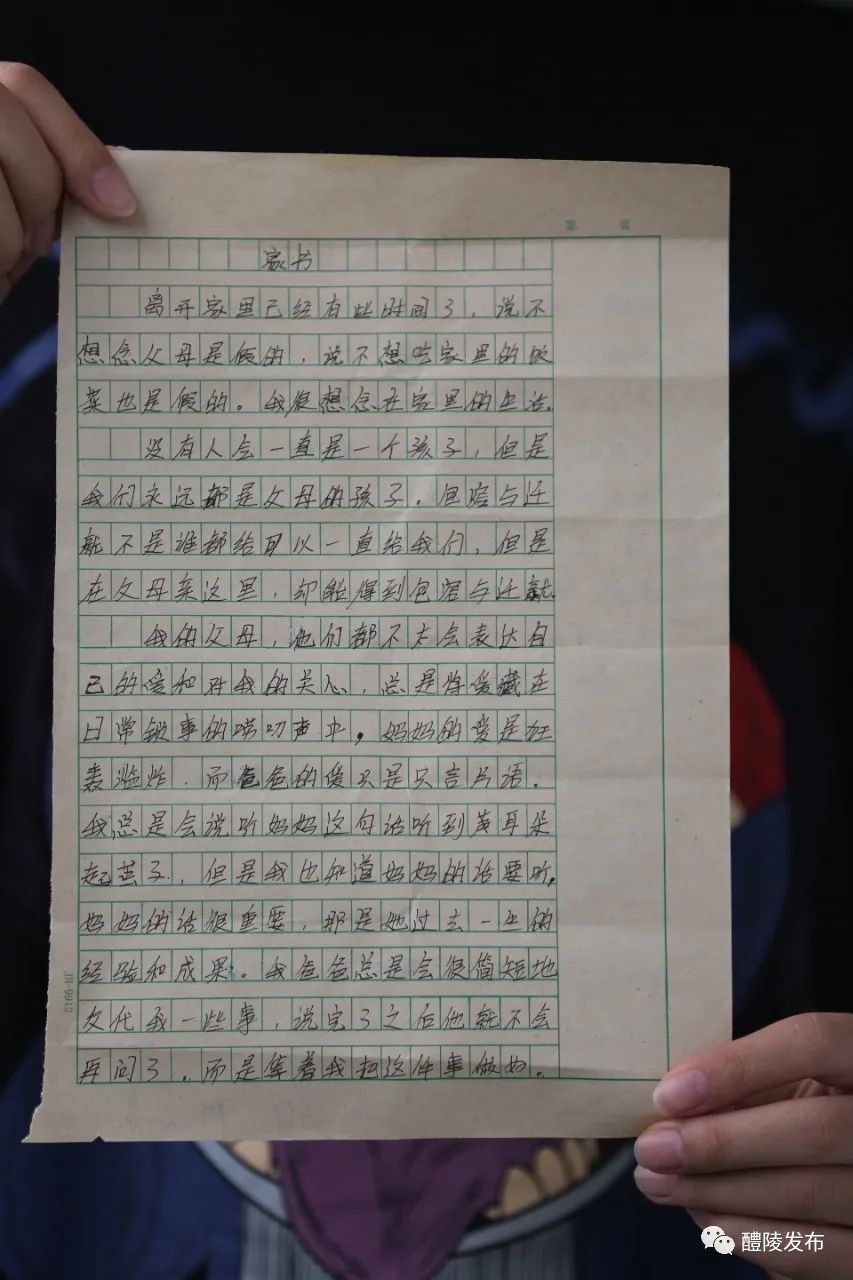 第 页
家书
离开家里已经有些时间了，说不
想念父母是假的，说不想吃家里的饭
菜也是假的。我很想念在家里的生活。
没有人会一直是一个孩子，但是
我们永远都是父母的孩子。包容与迁
就不是谁都给可以一直给我们，但是
在父母亲这里，却能得到包容与迁就。
我的父母，他们都不太会表达自
己的爱和对我的关心，总是将爱藏在
日常锁事的唠叨声中，妈妈的爱是狂
轰滥炸，而爸爸的爱只是只言片语。
我总是会说听妈妈这句话听到我耳朵
起茧子，但是我也知道妈妈的话要听，
妈妈的话很重要，那是她过去一生的
经验和成果。我爸爸总是会很简短地
交代我一些事，说完了之后他就不会
再问了，而是等着我把这件事做好。
醴陵发布